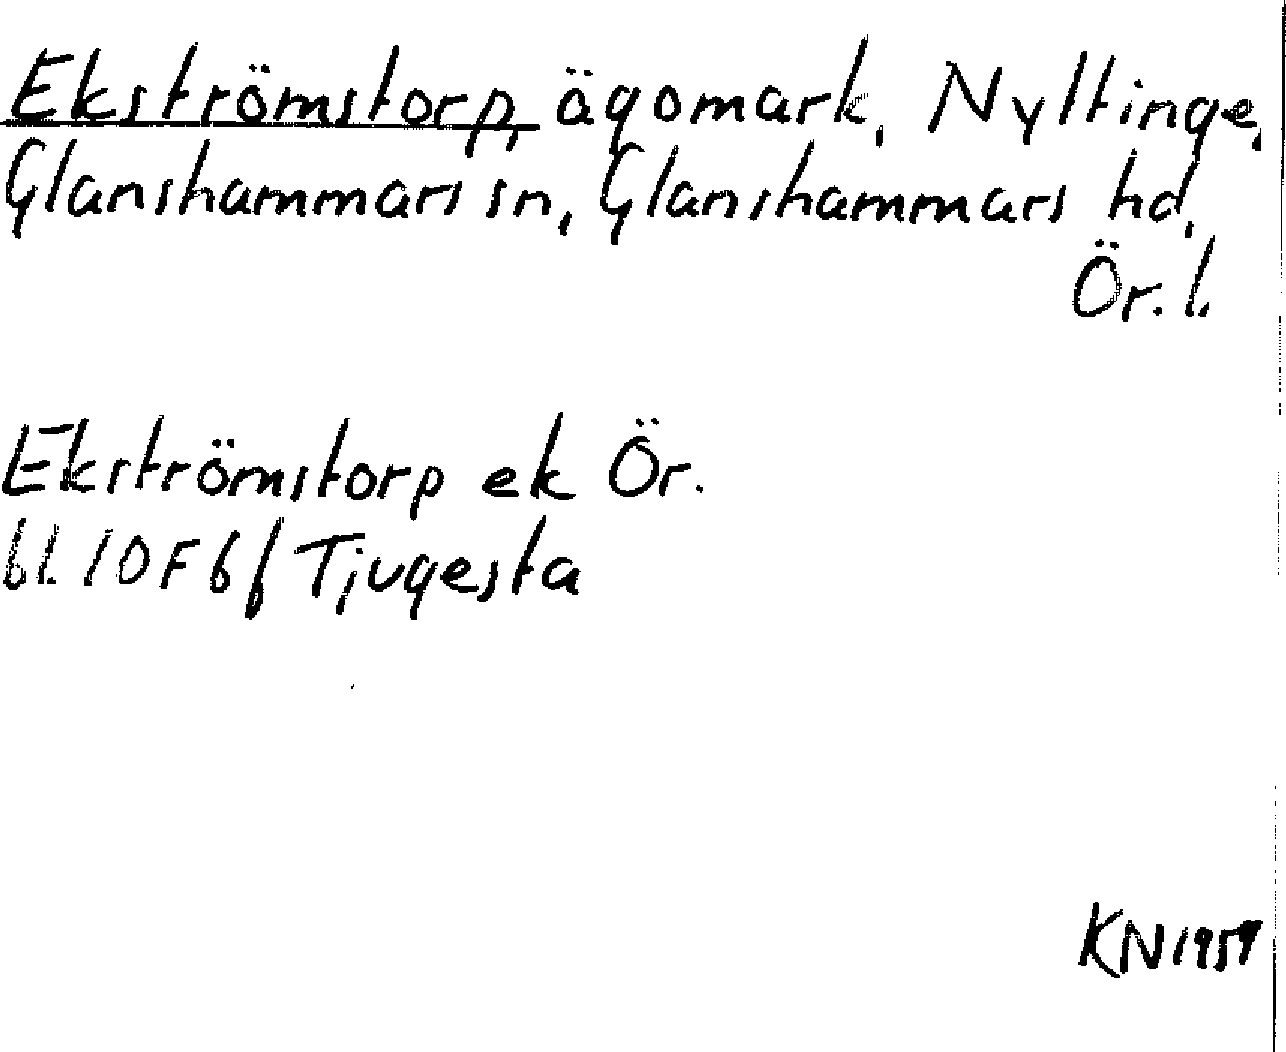 Ekströmstorp, ägomark, Nyttinge,
Glanshammars sn, Glanshammars hd,
Ör. l.
Ekströmstorp ek Ör.
bl. 10F6f Tjugesta
KN 1959